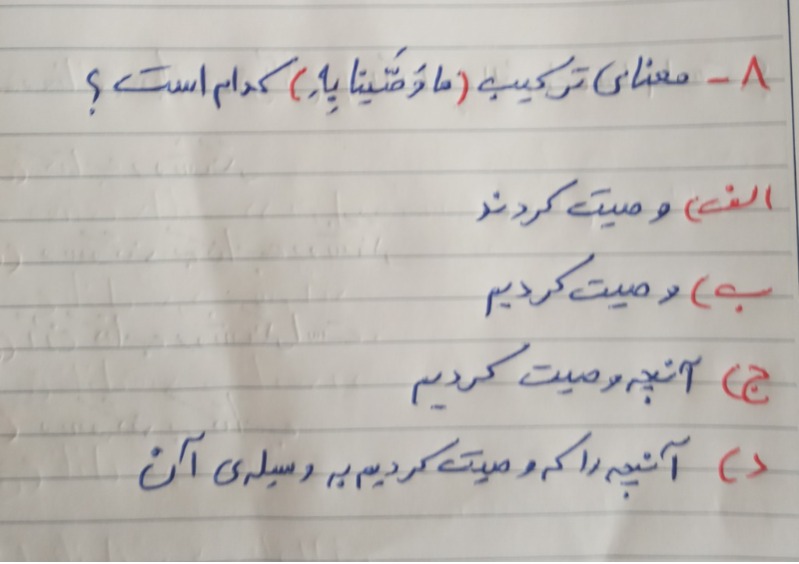 ۸- معنای ترکیب (ما وَصَّینا بِهِ) کدام است؟
الف) وصیت کردند
ب) وصیت کردیم
ج) آنچه وصیت کردیم
د) آنچه را که وصیت کردیم به وسیله‌ی آن